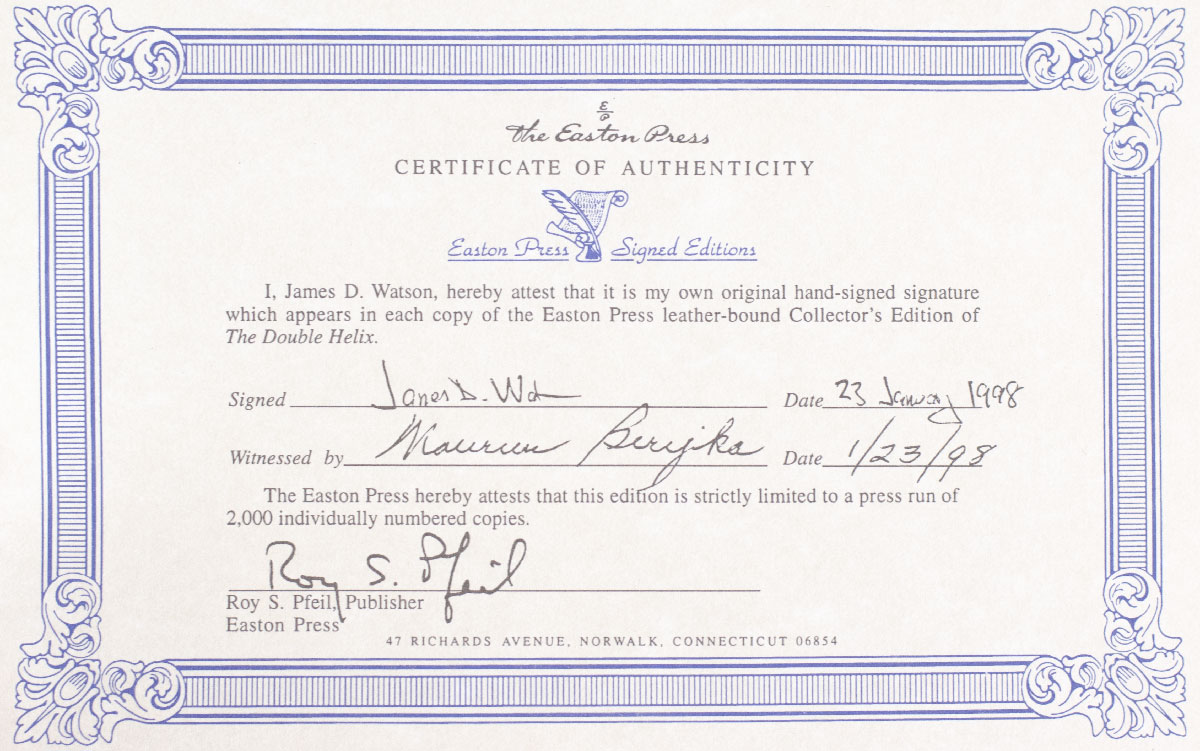 E/P
the Easton Press
CERTIFICATE OF AUTHENTICITY
Easton Press Signed Editions
I, James D. Watson, hereby attest that it is my own original hand-signed signature
which appears in each copy of the Easton Press leather-bound Collector's Edition of
The Double Helix.
Signed James D. Wat Date 23 January 1998
Witnessed by Maureen Date 1/23/98
The Easton Press hereby attests that this edition is strictly limited to a press run of
2,000 individually numbered copies.
Roy S. Pfeil
Roy S. Pfeil, Publisher
Easton Press
47 RICHARDS AVENUE, NORWALK, CONNECTICUT 06854